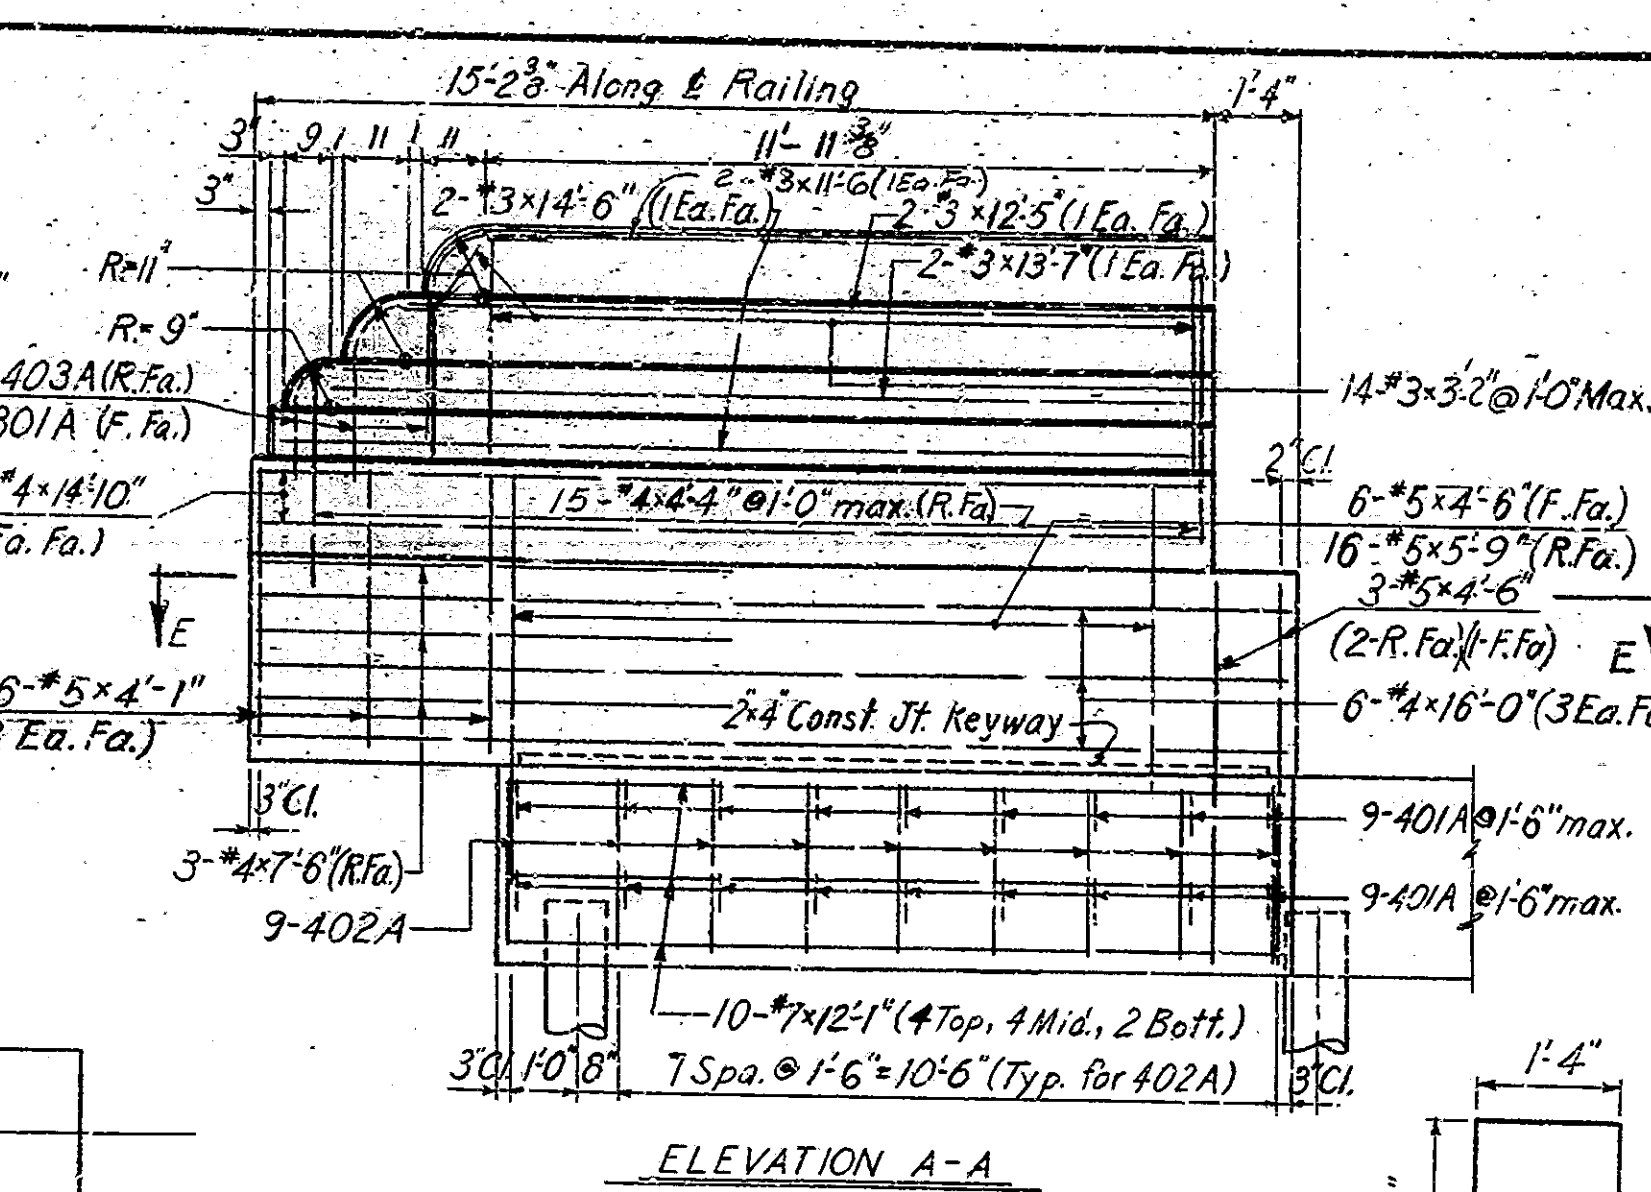 15'-2 3/8" Along ℄ Railing
1'-4"
3" 9 1 11 1 11 11'-11 3/8"
3"
2-#3×11'-6(1Ea.Fa.)
2-#3×14'-6" (1Ea.Fa.)
2-#3×12'-5"(1 Ea. Fa.)
2-#3×13'-7"(1 Ea. Fa.)
R=11"
R= 9"
403A(R.Fa.)
301A (F. Fa.)
14-#3×3'-2"@1'-0"Max.
2"Cl.
#4×14'-10"
Fa. Fa.)
15-#4×4'-4"@1'-0"max.(R.Fa)
6-#5×4'-6"(F.Fa.)
16-#5×5'-9"(R.Fa.)
3-#5×4'-6"
(2-R.Fa.)(1-F.Fa)
E
E
6-#5×4'-1"
Ea. Fa.)
2"×4"Const. Jt. Keyway
6-#4×16'-0"(3Ea.Fa
3"Cl.
3-#4×7'-6"(R.Fa.)
9-401A@1'-6"max.
9-402A
9-401A @1'-6"max.
10-#7×12'-1"(4Top, 4Mid., 2 Bott.)
3"Cl. 1'-0" 8" 7 Spa. @ 1'-6"=10'-6"(Typ. for 402A) 3"Cl.
1'-4"
ELEVATION A-A